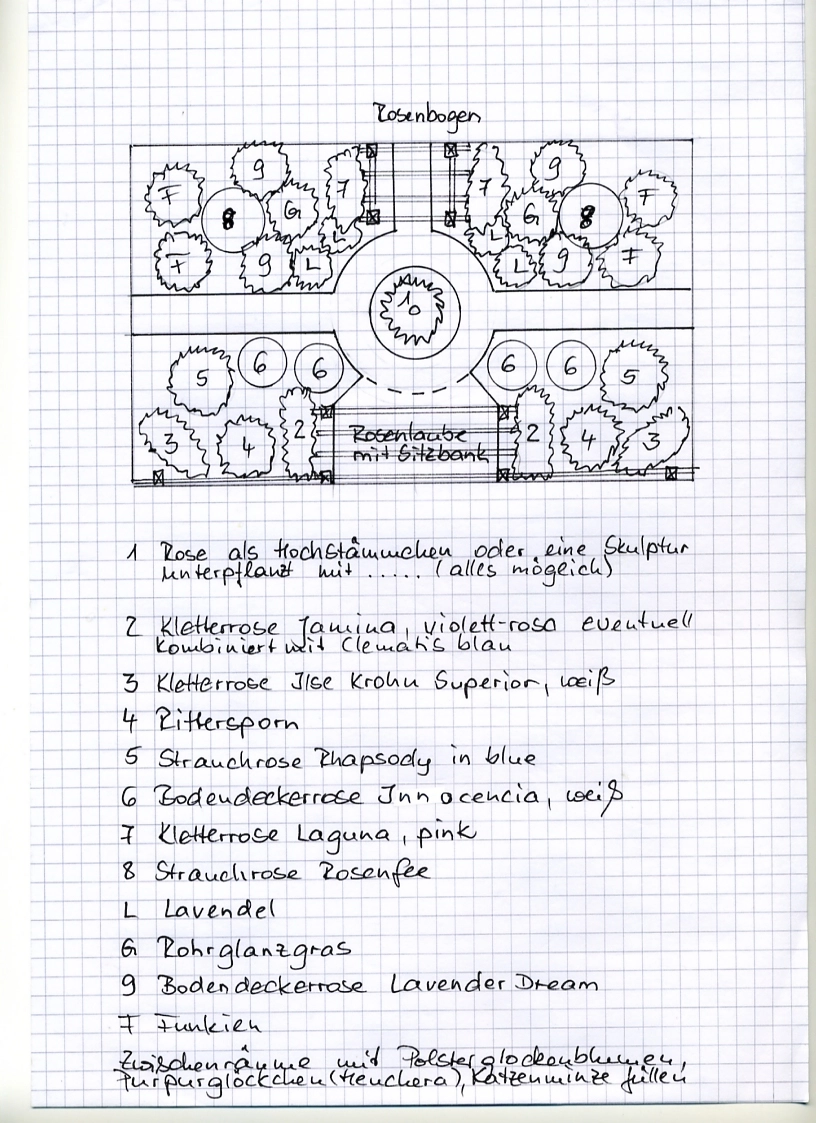 Rosenbogen
9 7 7 9
F 8 G G 8 F
F 9 L L L L 9 F
10
5 6 6 6 6 5
3 4 2 Rosenlaube 2 4 3
mit Sitzbank
1 Rose als Hochstämmchen oder eine Skulptur
unterpflanzt mit ..... (alles möglich)
2 Kletterrose Jamina, violett-rosa eventuell
kombiniert mit Clematis blau
3 Kletterrose Ilse Krohn Superior, weiß
4 Rittersporn
5 Strauchrose Rhapsody in blue
6 Bodendeckerrose Innocencia, weiß
7 Kletterrose Laguna, pink
8 Strauchrose Rosenfee
L Lavendel
G Rohrglanzgras
9 Bodendeckerrose Lavender Dream
F Funkien
Zwischenräume mit Polsterglockenblumen,
Purpurglöckchen (Heuchera), Katzenminze füllen